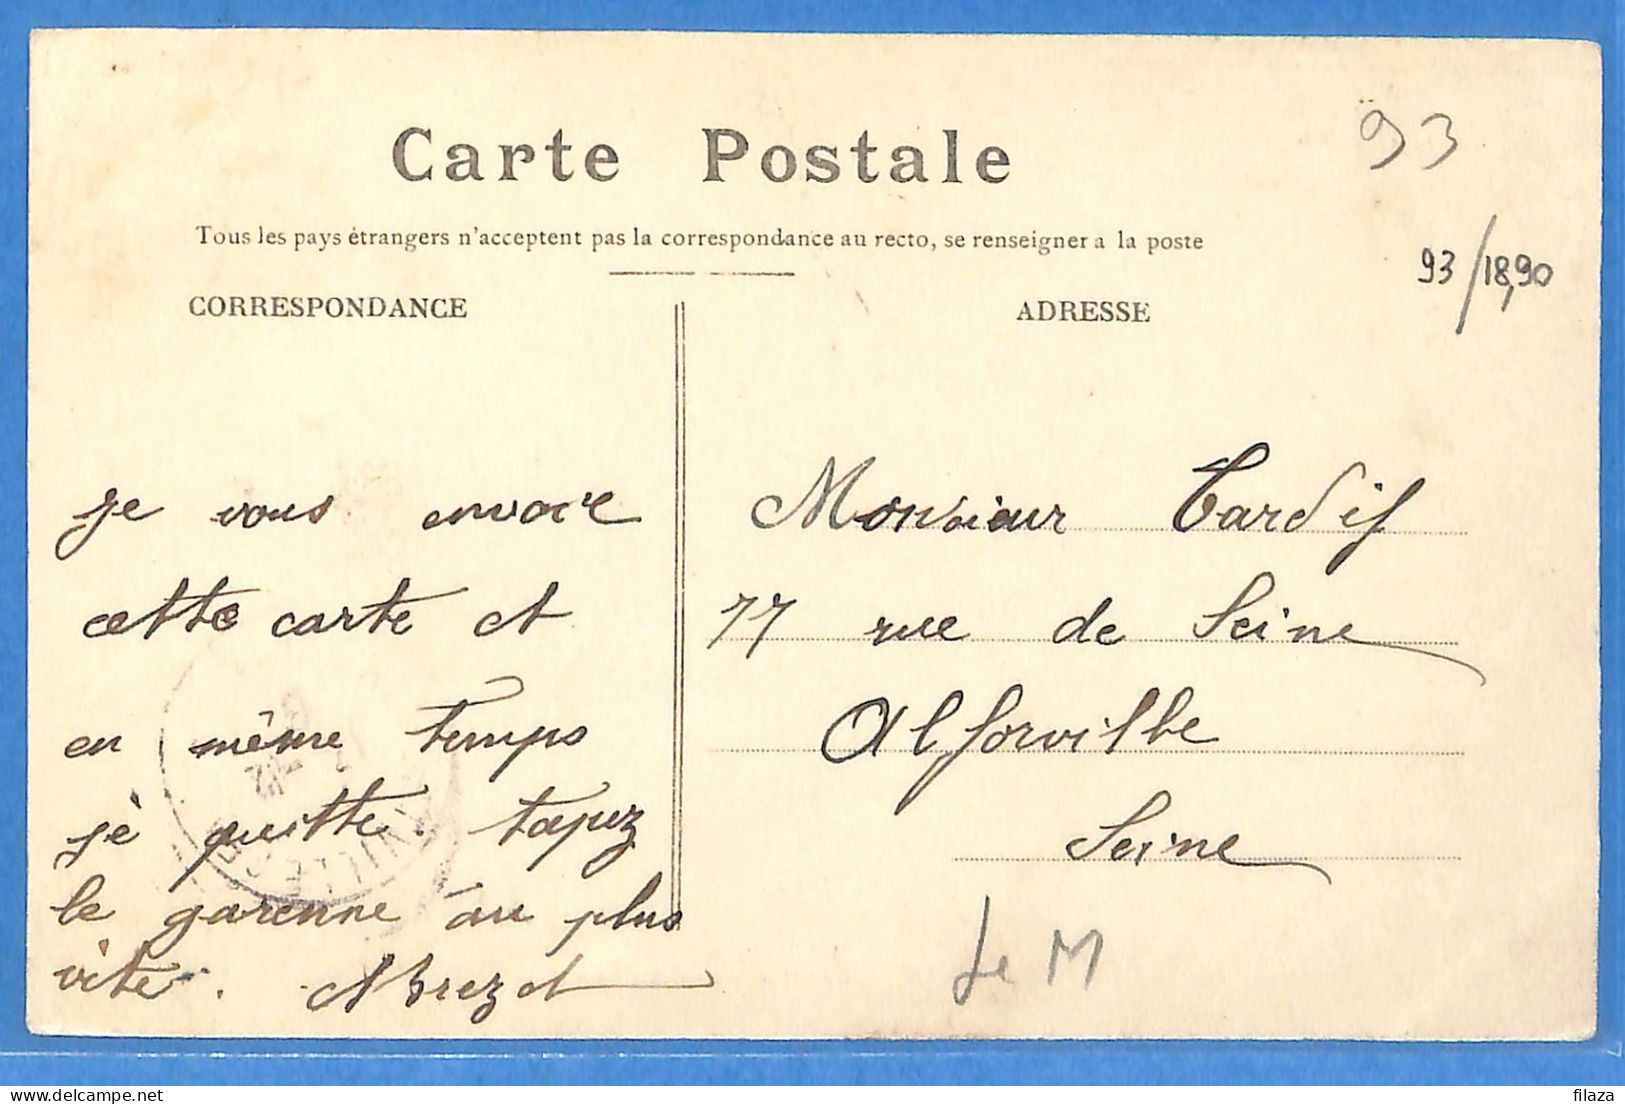 Carte Postale
93
Tous les pays étrangers n'acceptent pas la correspondance au recto, se renseigner a la poste
93/18,90
CORRESPONDANCE
ADRESSE
je vous envoie
cette carte et
en même temps
jè quitte. tapez
le garenne au plus
vite.
Monsieur Tardif
77 rue de Seine
Alforville
Seine
Le M
delcampe.net
filaza